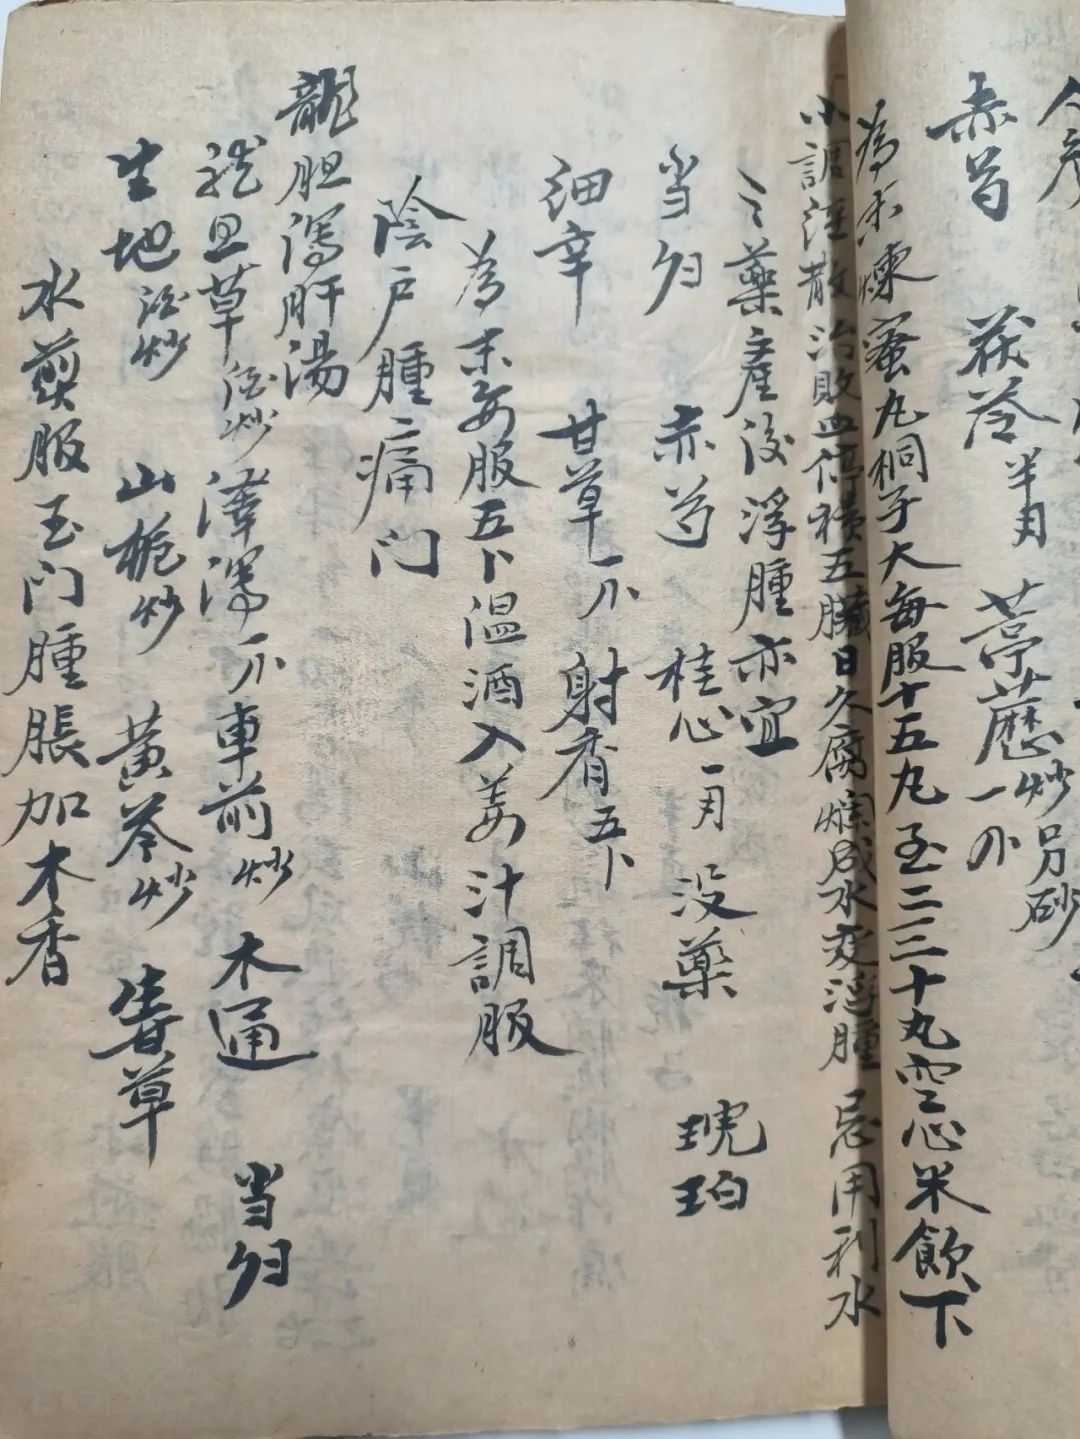 赤芍 茯苓半月 葶藶炒一个
為末煉蜜丸桐子大每服十五丸至二三十丸空心米飲下
小調涇散治敗血停積五臟日久腐爛成水変浮腫 忌用利水
之藥產後浮腫亦宜
当归 赤芍 桂心一月 没藥 琥珀
细辛 甘草一个 射香五卜
為末每服五卜温酒入姜汁調服
陰户腫痛门
龍胆瀉肝湯
龙旦草酒炒 澤瀉一个 車前炒 木通 当归
生地酒炒 山梔炒 黃芩炒 甘草
水煎服玉门腫脹加木香